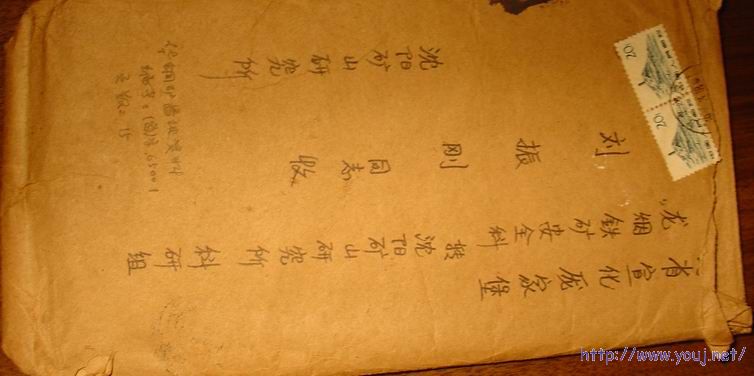 省宣化庞家堡
龙烟铁矿安全科转沈阳矿山研究所科研组
刘振刚同志收
沈阳矿山研究所
20
20
http://www.youj.net/